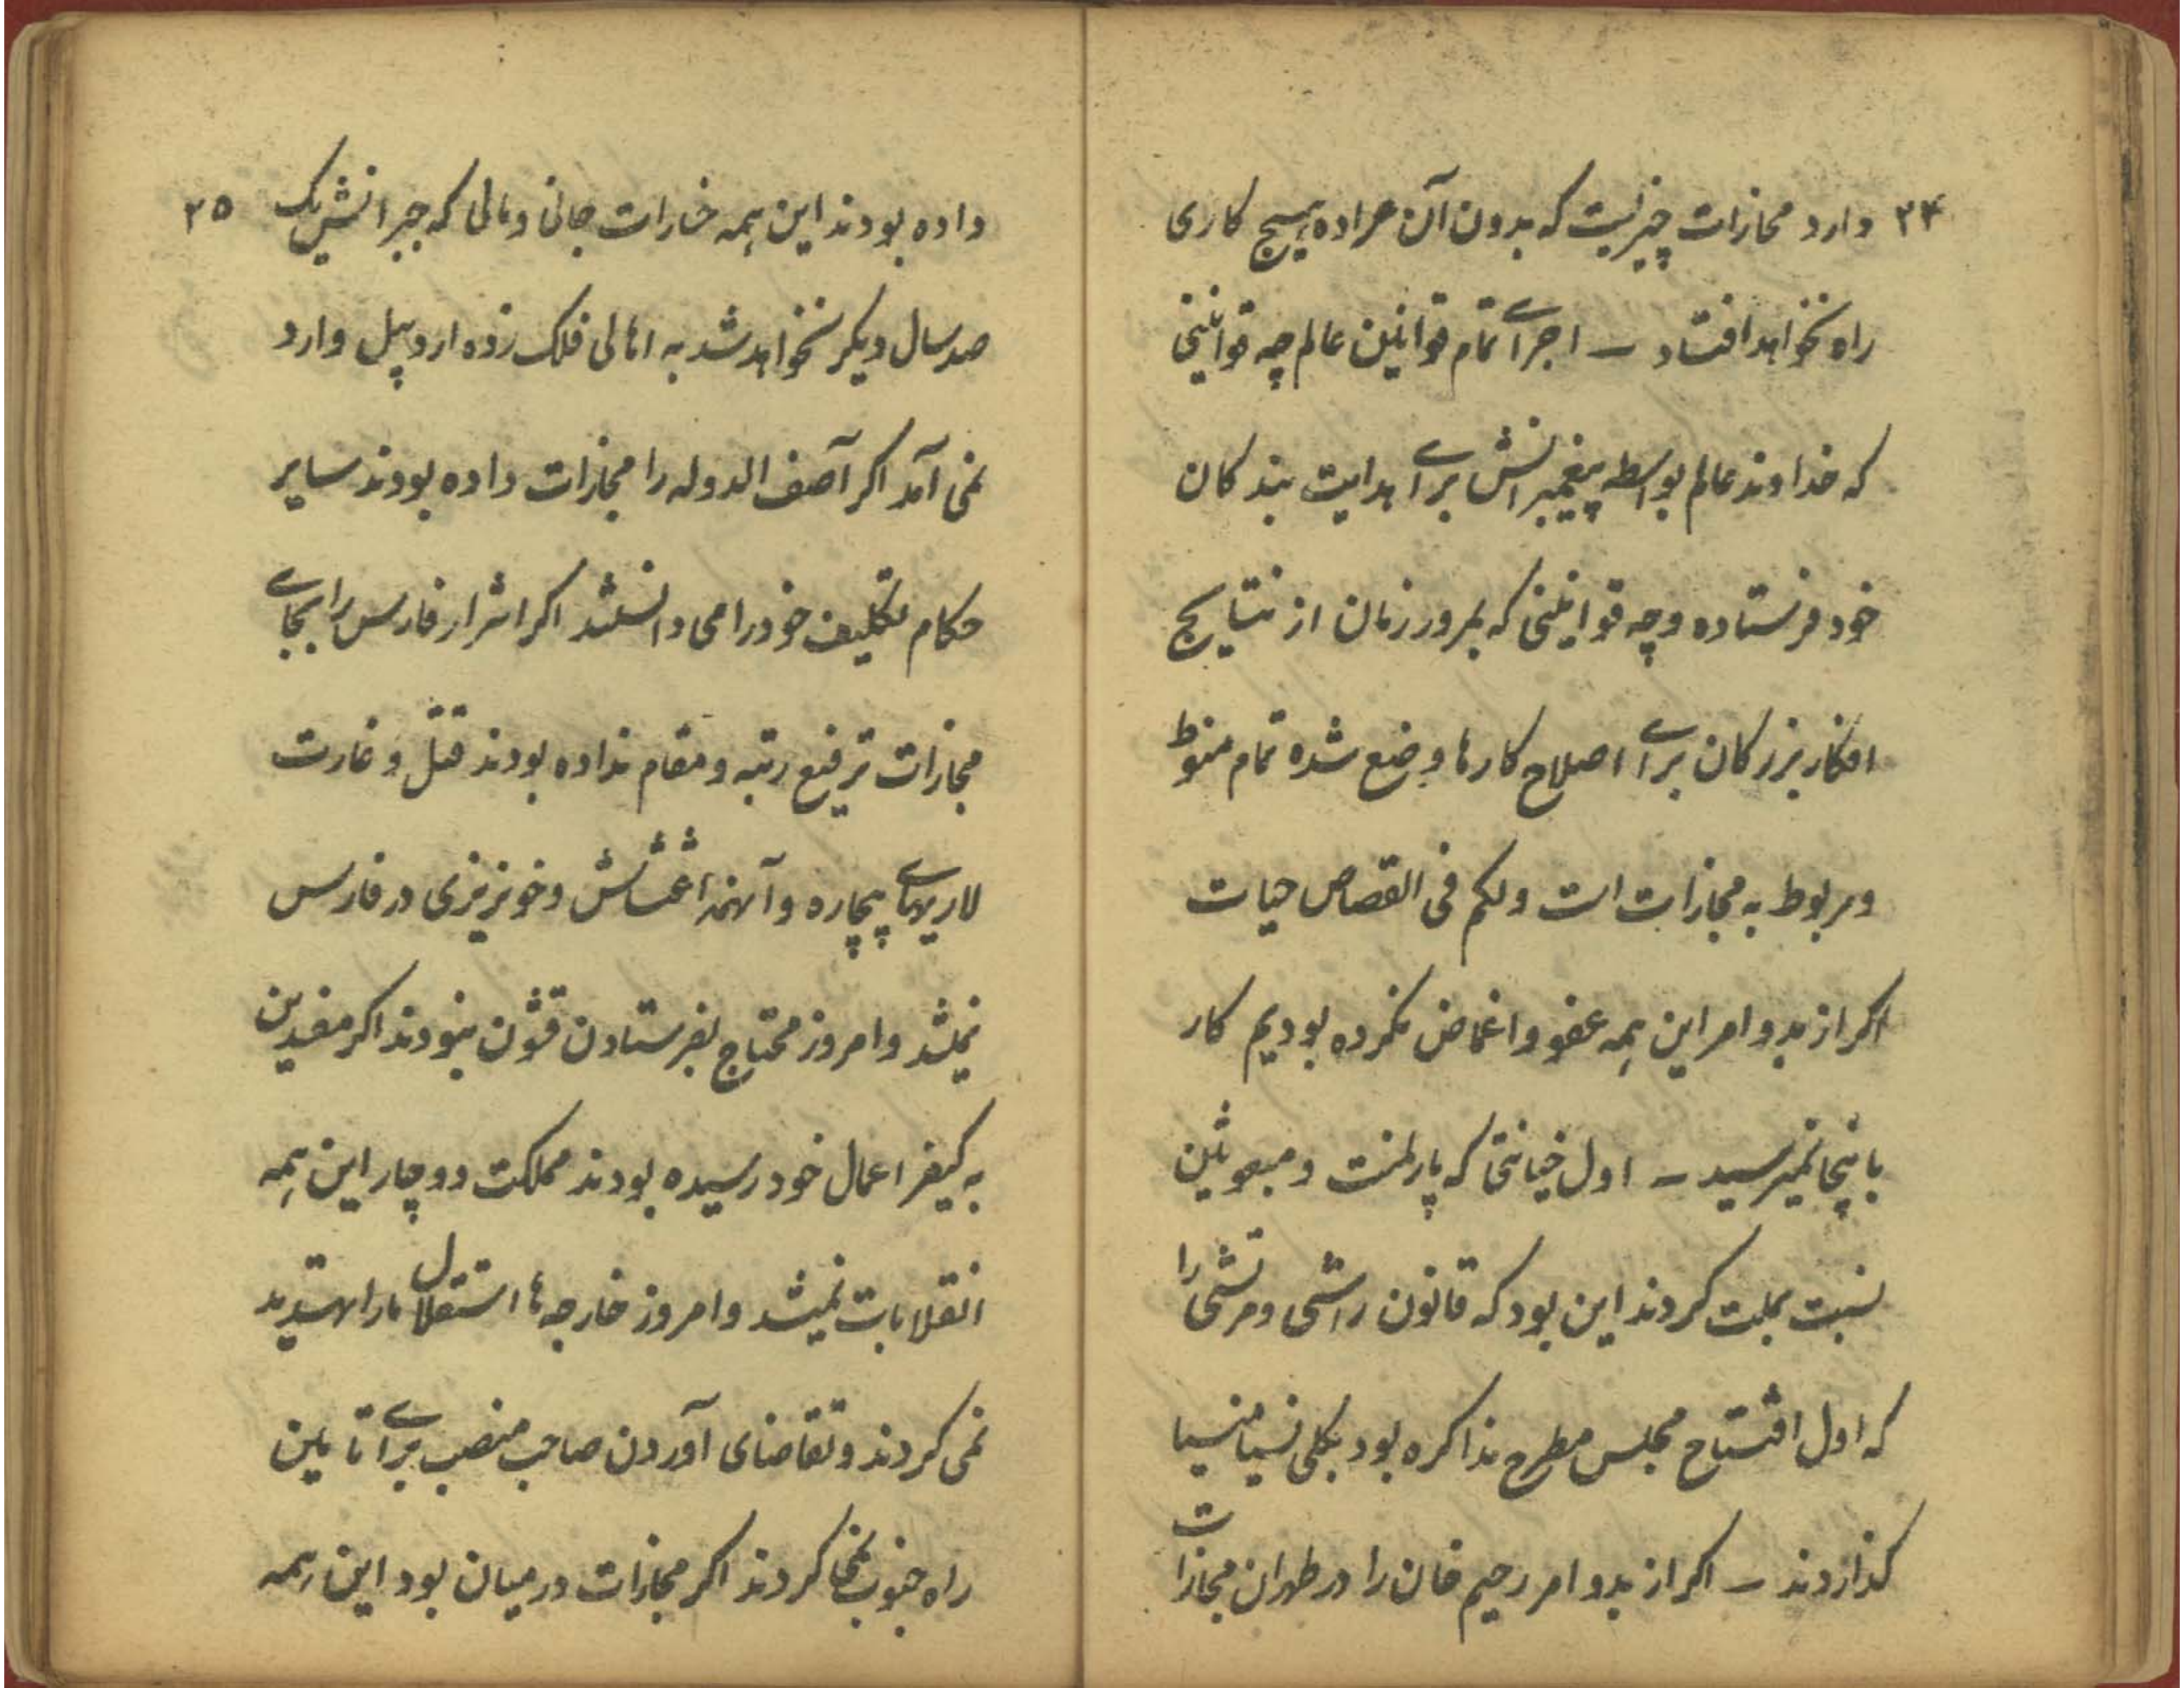 ۲۴ دارد مجازات چیزیست که بدون آن عراده هیچ کاری
راه نخواهد افتاد – اجرای تمام قوانین عالم چه قوانینی
که خداوند عالم بواسطه پیغمبرانش برای هدایت بندکان
خود فرستاده و چه قوانینی که بمرور زمان از نتایج
افکار بزرکان برای اصلاح کارها وضع شده تمام منوط
و مربوط به مجازات است ولکم فی القصاص حیات
اکر از بدو امر این همه عفو و اغماض نکرده بودیم کار
باینجا نمیرسید – اول خیانتی که پارلمنت و مبعوثین
نسبت بملت کردند این بود که قانون راشی و مرتشی را
که اول افتتاح مجلس مطرح مذاکره بود بکلی نسیا منسیا
کذاردند – اکر از بدو امر رحیم خان را در طهران مجازات
داده بودند این همه خسارات جانی و مالی که جبرانش یک ۲۵
صد سال دیکر نخواهد شد به اهالی فلک زده اردبیل وارد
نمی آمد اکر آصف الدوله را مجازات داده بودند سایر
حکام تکلیف خود را می دانستند اکر اشرار فارس را بجای
مجازات ترفیع رتبه و مقام نداده بودند قتل و غارت
لاریهای بیچاره و آنهمه اغتشاش و خونریزی در فارس
نمیشد و امروز محتاج بفرستادن قشون نبودند اکر مفسدین
به کیفر اعمال خود رسیده بودند مملکت دوچار این همه
انقلابات نمیشد و امروز خارجه ها استقلال ما را تهدید
نمی کردند و تقاضای آوردن صاحب منصب برای تامین
راه جنوب نمی کردند اکر مجازات در میان بود این همه